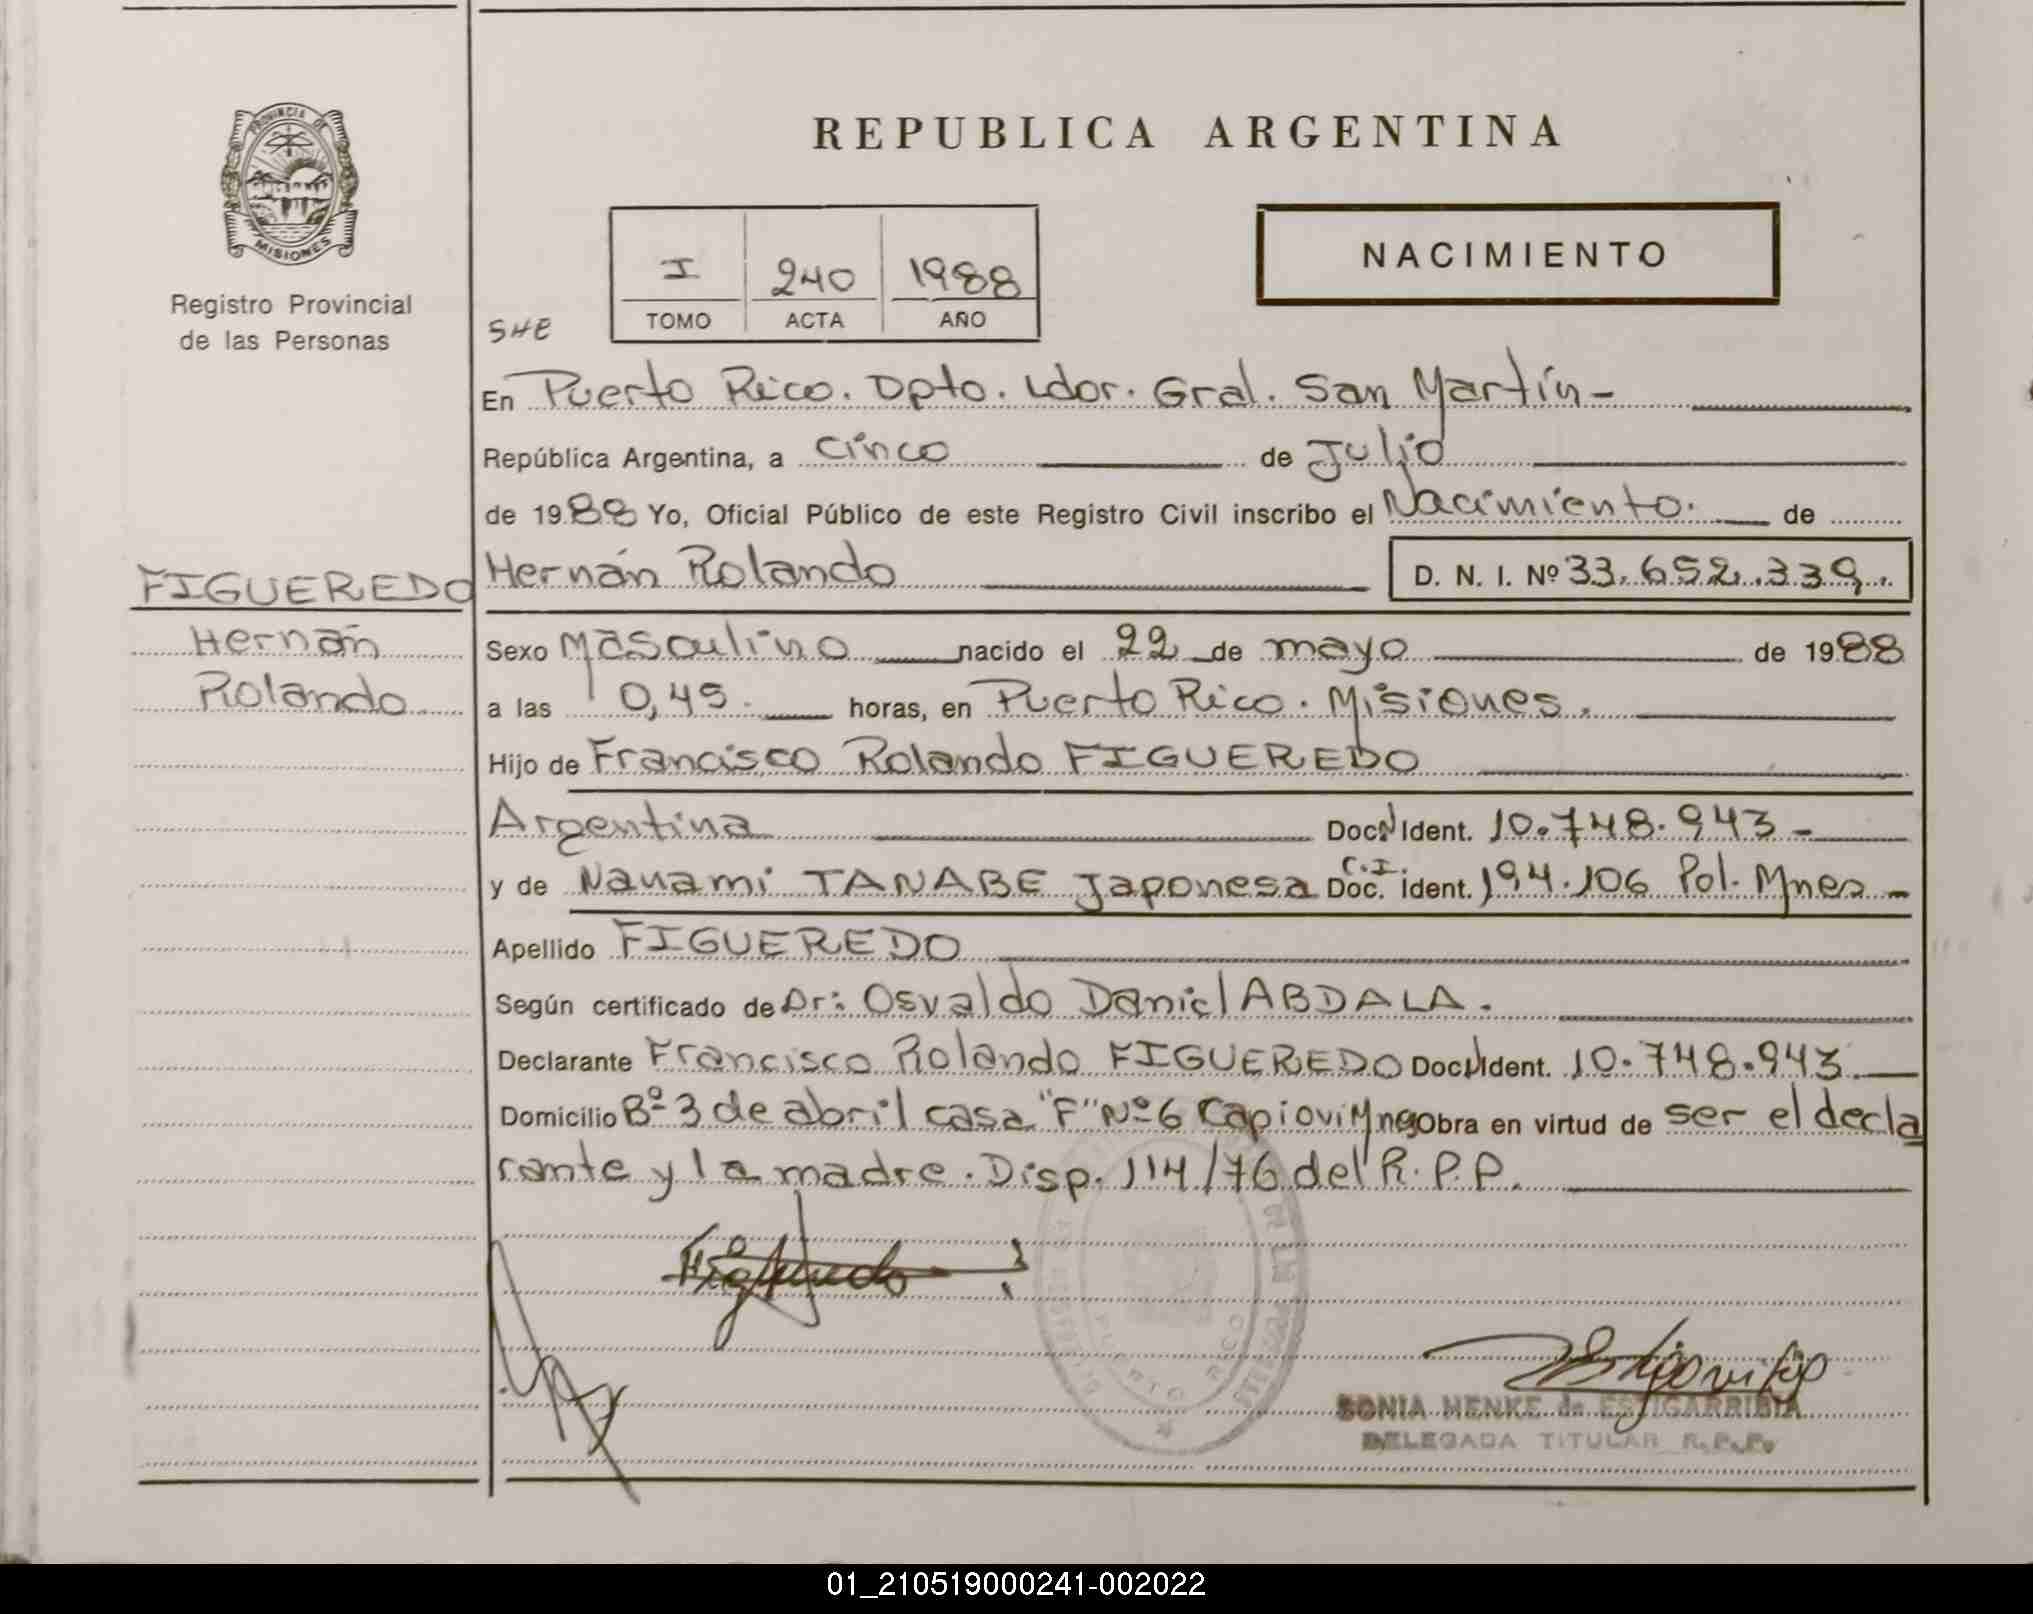 PROVINCIA DE
MISIONES
Registro Provincial
de las Personas
REPUBLICA ARGENTINA
NACIMIENTO
I 240 1988
TOMO ACTA AÑO
SHE
En Puerto Rico. Dpto. Ldor. Gral. San Martín-
República Argentina, a cinco de Julio
de 1988 Yo, Oficial Público de este Registro Civil inscribo el Nacimiento. de
Hernán Rolando D. N. I. Nº 33.652.339.
FIGUEREDO
Hernán
Rolando
Sexo Masculino nacido el 22 de mayo de 1988
a las 0,45. horas, en Puerto Rico. Misiones.
Hijo de Francisco Rolando FIGUEREDO
Argentina Doc. N Ident. 10.748.943-
y de Nanami TANABE Japonesa C.I. Doc. Ident. 194.106 Pol. Mnes-
Apellido FIGUEREDO
Según certificado de Dr: Osvaldo Daniel ABDALA.
Declarante Francisco Rolando FIGUEREDO Doc. N Ident. 10.748.943.
Domicilio Bº 3 de abril casa "F" Nº 6 Capioví Mnes Obra en virtud de ser el decla
rante y la madre. Disp. 114/76 del R.P.P.
Figueredo
PUERTO RICO
SONIA HENKE de ESTIGARRIBIA
DELEGADA TITULAR R.P.P.
01_210519000241-002022